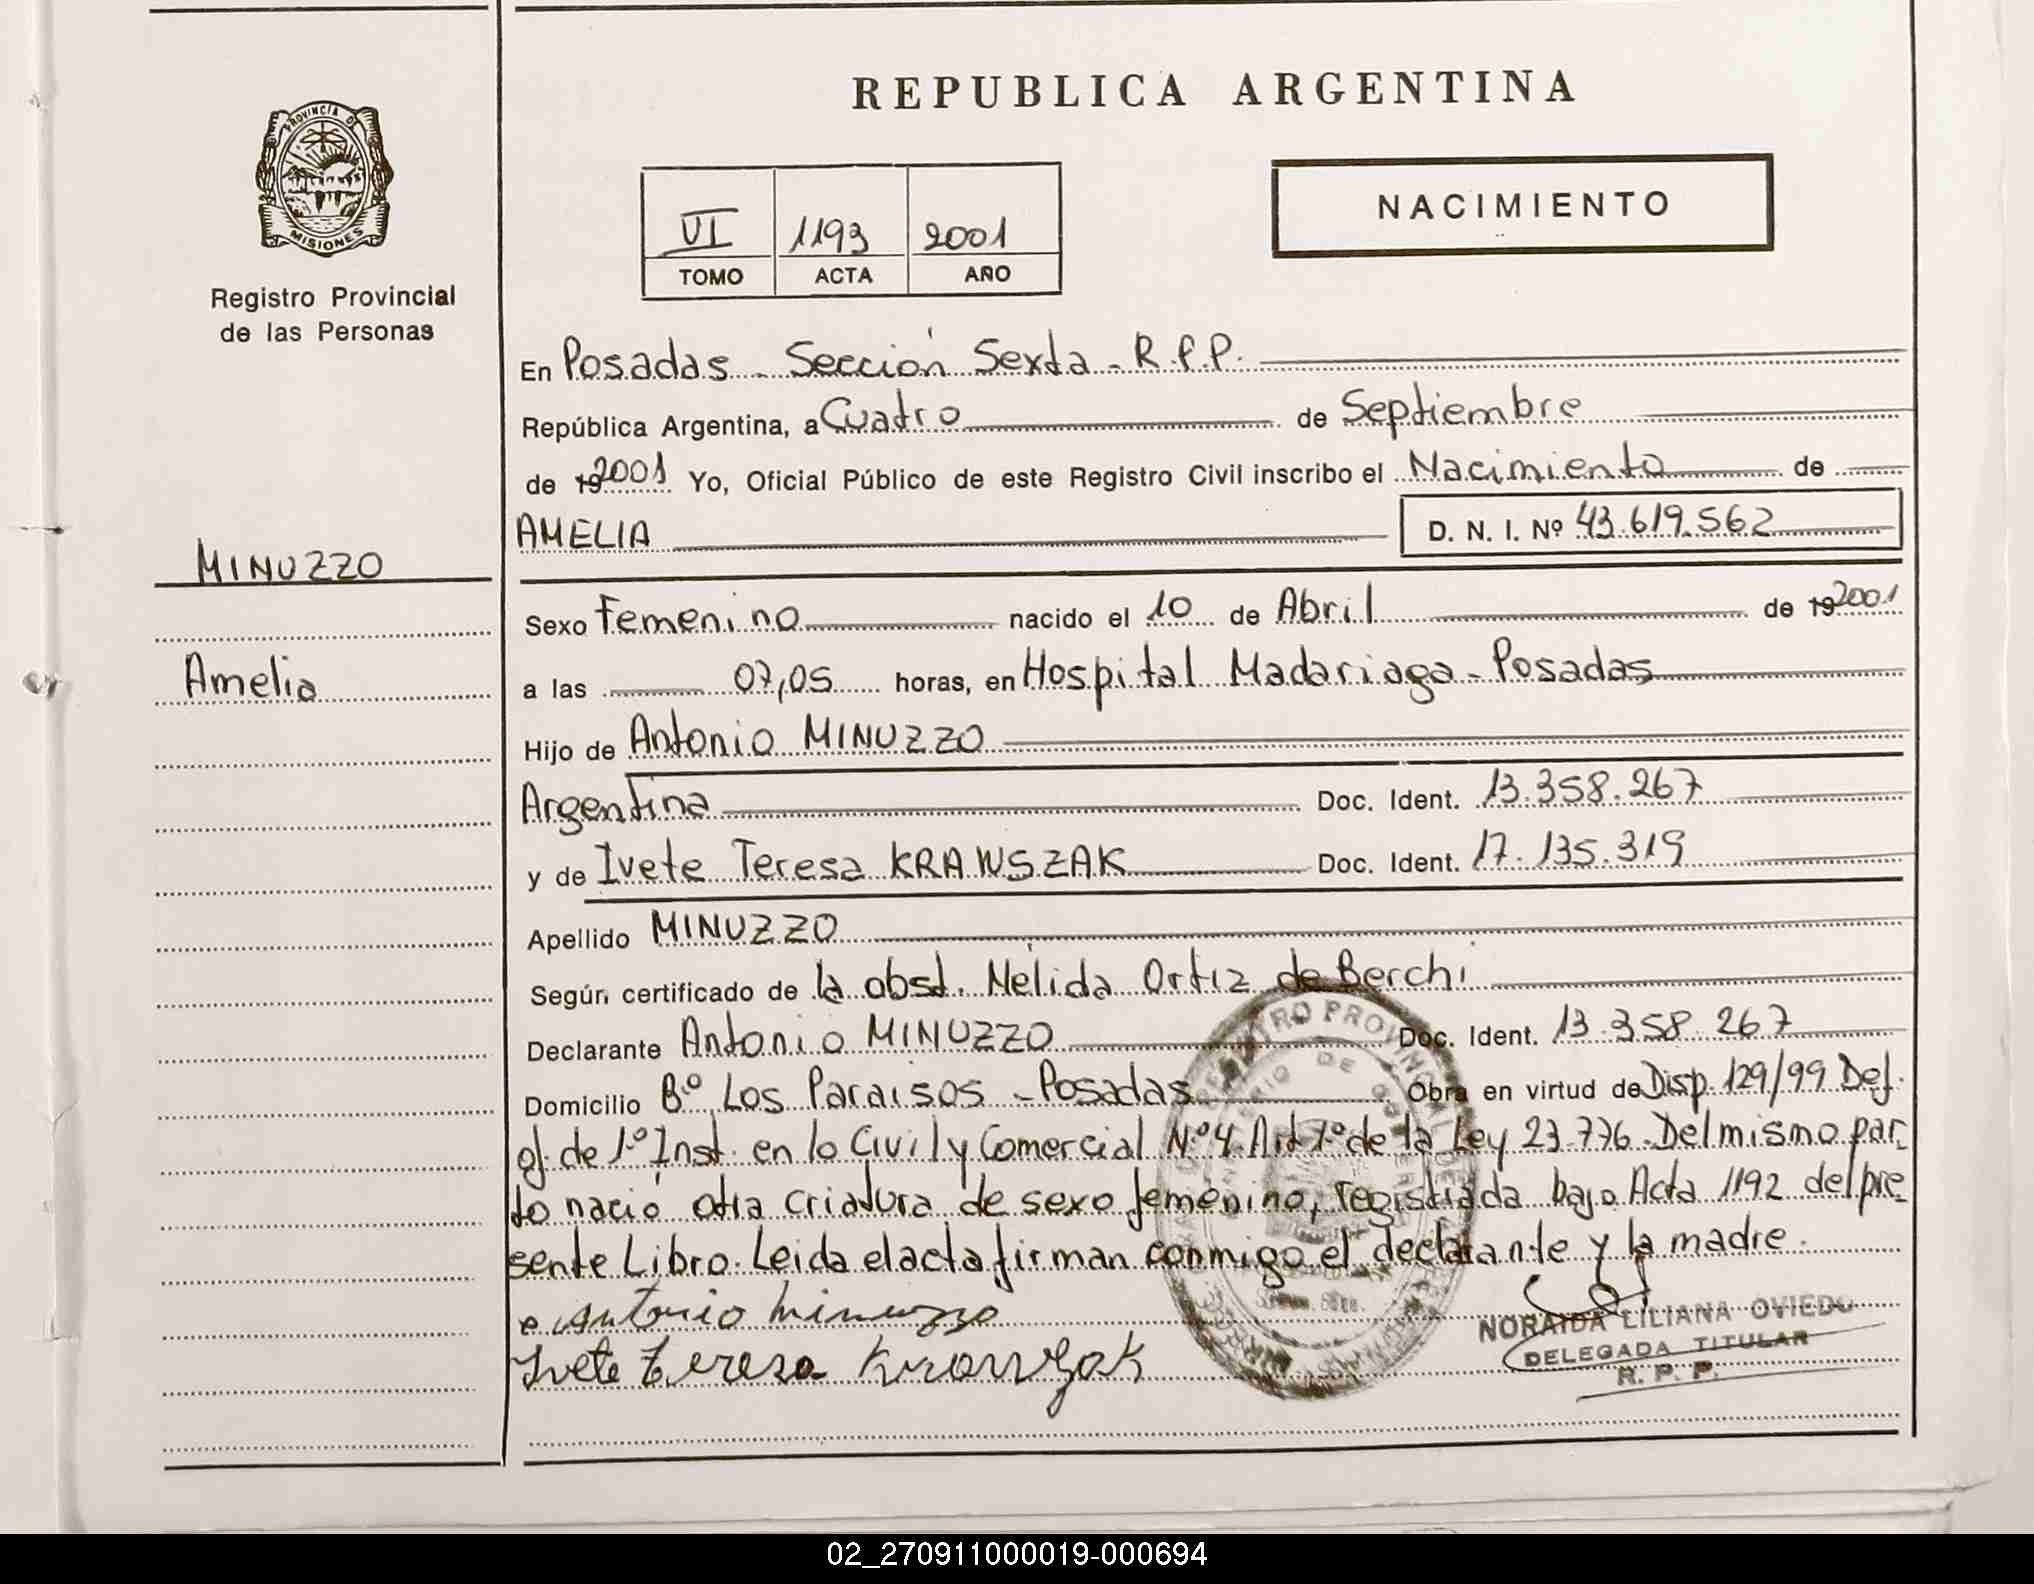 REPUBLICA ARGENTINA
PROVINCIA DE
MISIONES
Registro Provincial
de las Personas
VI 1193 2001
TOMO ACTA AÑO
NACIMIENTO
En Posadas - Sección Sexta - R.P.P.
República Argentina, a Cuatro de Septiembre
de 19 2001 Yo, Oficial Público de este Registro Civil inscribo el Nacimiento de
AMELIA D. N. I. Nº 43.619.562
MINUZZO
Sexo Femenino nacido el 10 de Abril de 19 2001
Amelia
a las 07,05 horas, en Hospital Madariaga - Posadas
Hijo de Antonio MINUZZO
Argentina Doc. Ident. 13.358.267
y de Ivete Teresa KRAWSZAK Doc. Ident. 17.135.319
Apellido MINUZZO
Según certificado de la obst. Nélida Ortiz de Berchi
Declarante Antonio MINUZZO Doc. Ident. 13.358.267
Domicilio Bº Los Paraisos - Posadas Obra en virtud de Disp. 129/99 Def.
of. de 1º Inst. en lo Civil y Comercial Nº 4. Art 1º de la Ley 23.776. Del mismo par-
to nació otra criatura de sexo femenino, registrada bajo Acta 1192 del pre-
sente Libro. Leida el acta firman conmigo el declarante y la madre.
Antonio Minuzzo
Ivete Teresa Krawszak
NORAIDA LILIANA OVIEDO
DELEGADA TITULAR
R. P. P.
02_270911000019-000694